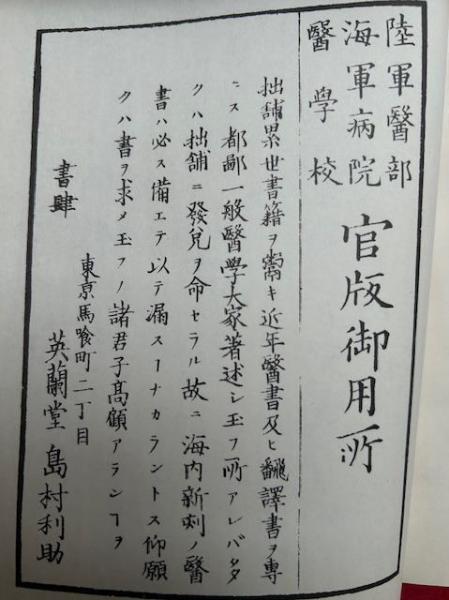 陸軍醫部
海軍病院
醫學校
官版御用所
拙舗累世書籍ヲ鬻キ近年醫書及ヒ飜譯書ヲ専
ニス都鄙一般醫學大家著述シ玉フ所アレバタ
クハ拙舗ニ發兌ヲ命セラル故ニ海内新刺ノ醫
書ハ必ス備エテ以テ漏スーナカラントス仰願
クハ書ヲ求メ玉フノ諸君子髙顧アランヿヲ
東京馬喰町二丁目
書肆 英蘭堂 島村利助